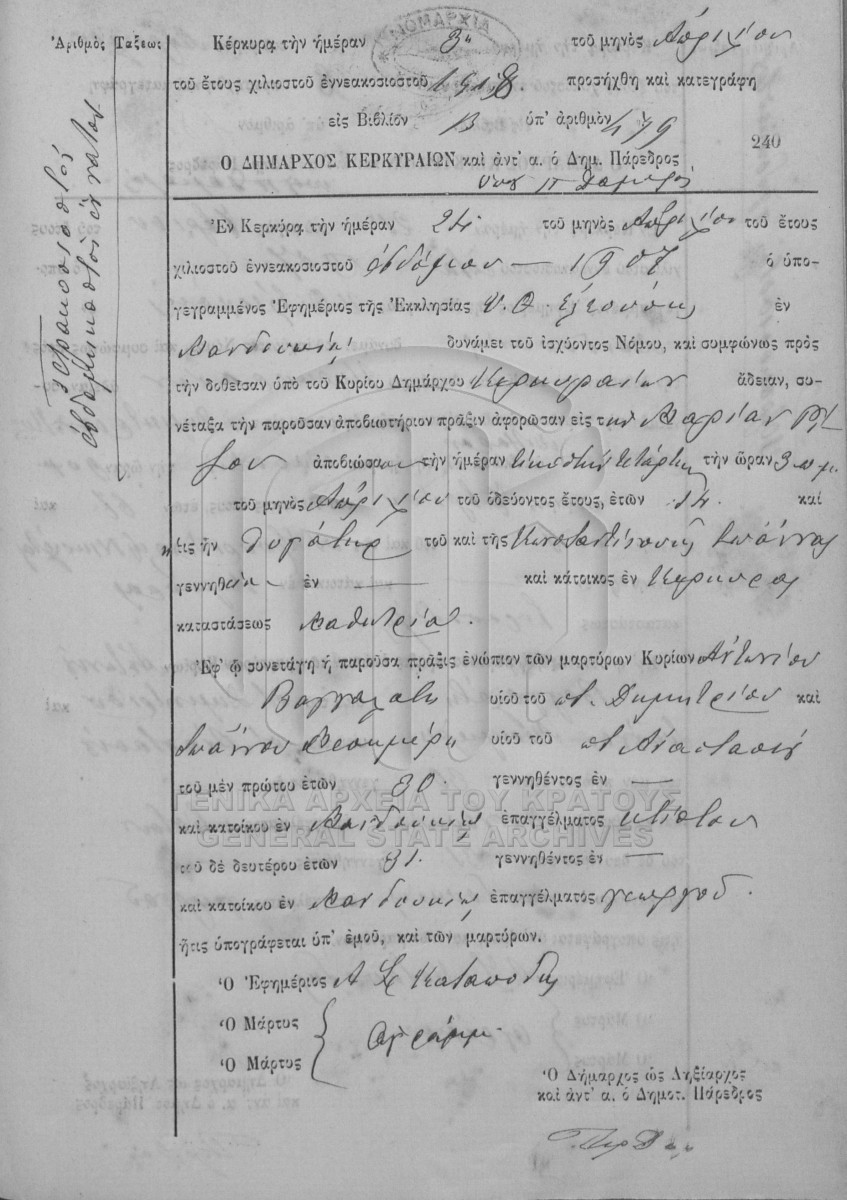 Ἀριθμὸς Τάξεως
τετρακοσιοστός
ἑβδομηκοστὸς ἔννατος
ΝΟΜΑΡΧΙΑ
Κέρκυρα τὴν ἡμέραν τοῦ μηνὸς Ἀπριλίου
τοῦ ἔτους χιλιοστοῦ ἐννεακοσιοστοῦ προσήχθη καὶ κατεγράφη
εἰς Βιβλίον Β ὑπ' ἀριθμὸν 479
240
Ο ΔΗΜΑΡΧΟΣ ΚΕΡΚΥΡΑΙΩΝ καὶ ἀντ' α. ὁ Δημ. Πάρεδρος
Ἐν Κερκύρᾳ τὴν ἡμέραν 24 τοῦ μηνὸς Ἀπριλίου τοῦ ἔτους
χιλιοστοῦ ἐννεακοσιοστοῦ ἑβδόμου — 1907 ὁ ὑπο-
γεγραμμένος Ἐφημέριος τῆς Ἐκκλησίας Υ. Θ. Ἐλεούσης ἐν
Μανδουκίῳ δυνάμει τοῦ ἰσχύοντος Νόμου, καὶ συμφώνως πρὸς
τὴν δοθεῖσαν ὑπὸ τοῦ Κυρίου Δημάρχου Κερκυραίων ἄδειαν, συ-
νέταξα τὴν παροῦσαν ἀποβιωτήριον πρᾶξιν ἀφορῶσαν εἰς τὴν Μαρίαν
ἀποβιώσα τὴν ἡμέραν εἰκοστὴν τετάρτην τὴν ὥραν 3 μ.μ.
τοῦ μηνὸς Ἀπριλίου τοῦ ὁδεύοντος ἔτους, ἐτῶν 14. καί
τις ἦν θυγάτηρ τοῦ καὶ τῆς Κωνσταντίνου Ἰωάννας
γεννηθεῖσα ἐν — καὶ κάτοικος ἐν Κερκύρᾳ
καταστάσεως Μαθήτρια.
Ἐφ' ᾧ συνετάγη ἡ παροῦσα πρᾶξις ἐνώπιον τῶν μαρτύρων Κυρίων Ἀντωνίου
Βαγγαλάτη υἱοῦ τοῦ ποτ. Δημητρίου καὶ
Ἰωάννου υἱοῦ τοῦ ποτ Ἀναστασίου
τοῦ μὲν πρώτου ἐτῶν 30. γεννηθέντος ἐν —
καὶ κατοίκου ἐν Μανδουκίῳ ἐπαγγέλματος κτίστου
τοῦ δὲ δευτέρου ἐτῶν 31. γεννηθέντος ἐν —
καὶ κατοίκου ἐν Μανδουκίῳ ἐπαγγέλματος γεωργοῦ.
ἥτις ὑπογράφεται ὑπ' ἐμοῦ, καὶ τῶν μαρτύρων.
Ὁ Ἐφημέριος Α Σ Κατσαπόδης
Ὁ Μάρτυς
Ὁ Μάρτυς
Ἀγράμμ.
Ὁ Δήμαρχος ὡς Ληξίαρχος
καὶ ἀντ' α. ὁ Δημοτ. Πάρεδρος
ΓΕΝΙΚΑ ΑΡΧΕΙΑ ΤΟΥ ΚΡΑΤΟΥΣ
GENERAL STATE ARCHIVES